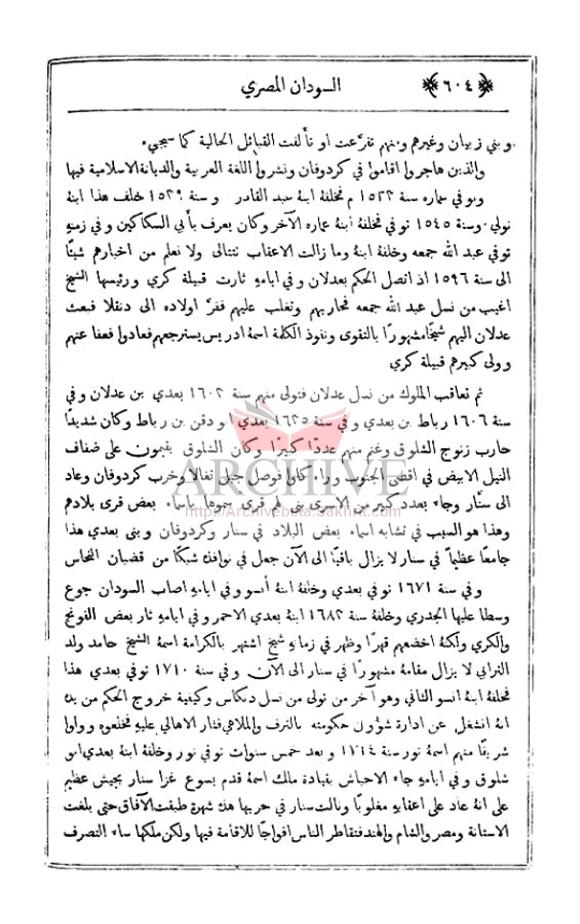 ﴿٦٠٤﴾ السودان المصري
وبني زبيان وغيرهم ومنهم تفرعت او تألفت القبائل الحالية كما سيجيء
والذين هاجروا اقاموا في كردوفان ونشروا اللغة العربية والديانة الاسلامية فيها
وتوفي عماره سنة ١٥٣٣ م فخلفهُ ابنهُ عبد القادر وسنة ١٥٣٩ خلف هذا ابنهُ
نولي وسنة ١٥٤٥ توفي فخلفهُ ابنهُ عماره الآخر وكان يعرف بأبي السكاكين وفي زمنهِ
توفي عبد الله جمعه وخلفهُ ابنهُ وما زالت الاعقاب تتتالى ولا نعلم من اخبارهم شيئًا
الى سنة ١٥٩٦ اذ اتصل الحكم بعدلان وفي ايامهِ ثارت قبيلة كري ورئيسها الشيخ
اغيب من نسل عبد الله جمعه فحاربهم وتغلب عليهم ففرَّ اولاده الى دنقلا فبعث
عدلان اليهم شيخًا مشهورًا بالتقوى ونفوذ الكلمة اسمهُ ادريس يسترجعهم فعادوا فعفا عنهم
وولى كبيرهم قبيلة كري
ثم تعاقب الملوك من نسل عدلان فتولى منهم سنة ١٦٠٢ بعدي بن عدلان وفي
سنة ١٦٠٦ رباط بن بعدي وفي سنة ١٦٢٥ بعدي ابو دقن بن رباط وكان شديدًا
حارب زنوج الشلوق وغنم منهم عددًا كبيرًا وكان الشلوق يقيمون على ضفاف
النيل الابيض في اقصى الجنوب وراء كاكا فوصل جبل تغالا وخرب كردوفان وعاد
الى سنَّار وجاء بعدد كبير من الاسرى بنى لهم قرى سموها باسماء بعض قرى بلادهم
وهذا هو السبب في تشابه اسماء بعض البلاد في سنار وكردوفان وبنى بعدي هذا
جامعًا عظيمًا في سنار لا يزال باقيًا الى الآن جعل في نوافذهِ شبكًا من قضبان النحاس
وفي سنة ١٦٧١ توفي بعدي وخلفهُ ابنهُ أنسو وفي ايامهِ اصاب السودان جوع
وسطا عليها الجدري وخلفهُ سنة ١٦٨٢ ابنهُ بعدي الاحمر وفي ايامهِ ثار بعض الفونج
والكري ولكنهُ اخضعهم قهرًا وظهر في زمانهِ شيخ اشتهر بالكرامة اسمهُ الشيخ حامد ولد
الترابي لا يزال مقامهُ مشهورًا في سنار الى الآن وفي سنة ١٧١٠ توفي بعدي هذا
فخلفهُ ابنهُ انسو الثاني وهو آخر من تولى من نسل دنكاس وكيفية خروج الحكم من يده
انهُ انشغل عن ادارة شؤون حكومتهِ بالترف والملاهي فثار الاهالي عليهِ فخلعوه وولوا
شريفًا منهم اسمهُ نور سنة ١٧١٤ وبعد خمس سنوات توفي نور وخلفهُ ابنهُ بعدي ابو
شلوق وفي ايامهِ جاء الاحباش بقيادة مالك اسمهُ قدم يسوع غزا سنار بجيش عظيم
على انهُ عاد على اعقابهِ مغلوبًا ونالت سنار في حربها هذه شهرة طبقت الآفاق حتى بلغت
الاستانة ومصر والشام والهند فتقاطر الناس افواجًا للاقامة فيها ولكن ملكها ساء التصرف
ARCHIVE
http://Archivebeta.Sakhrit.com